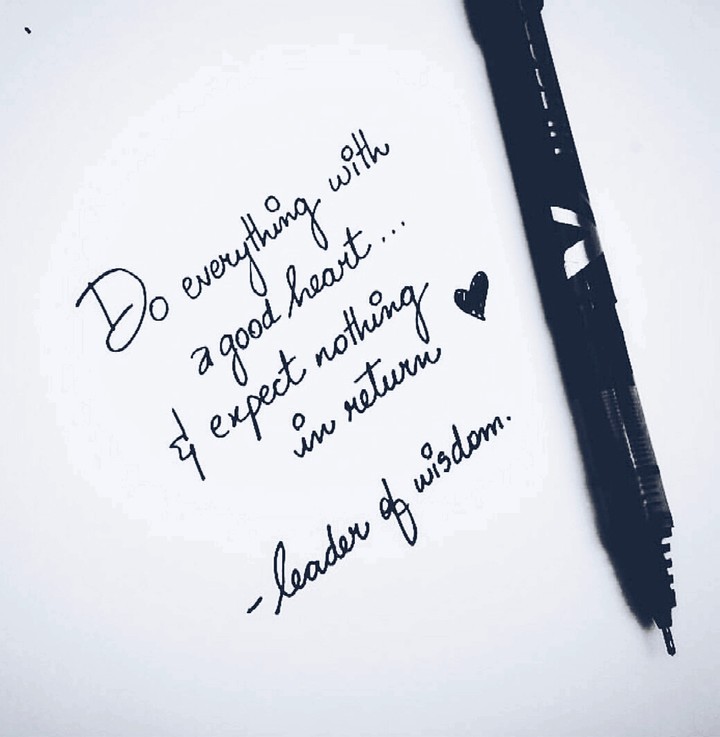 Do everything with
a good heart...
& expect nothing
in return
-leader of wisdom.